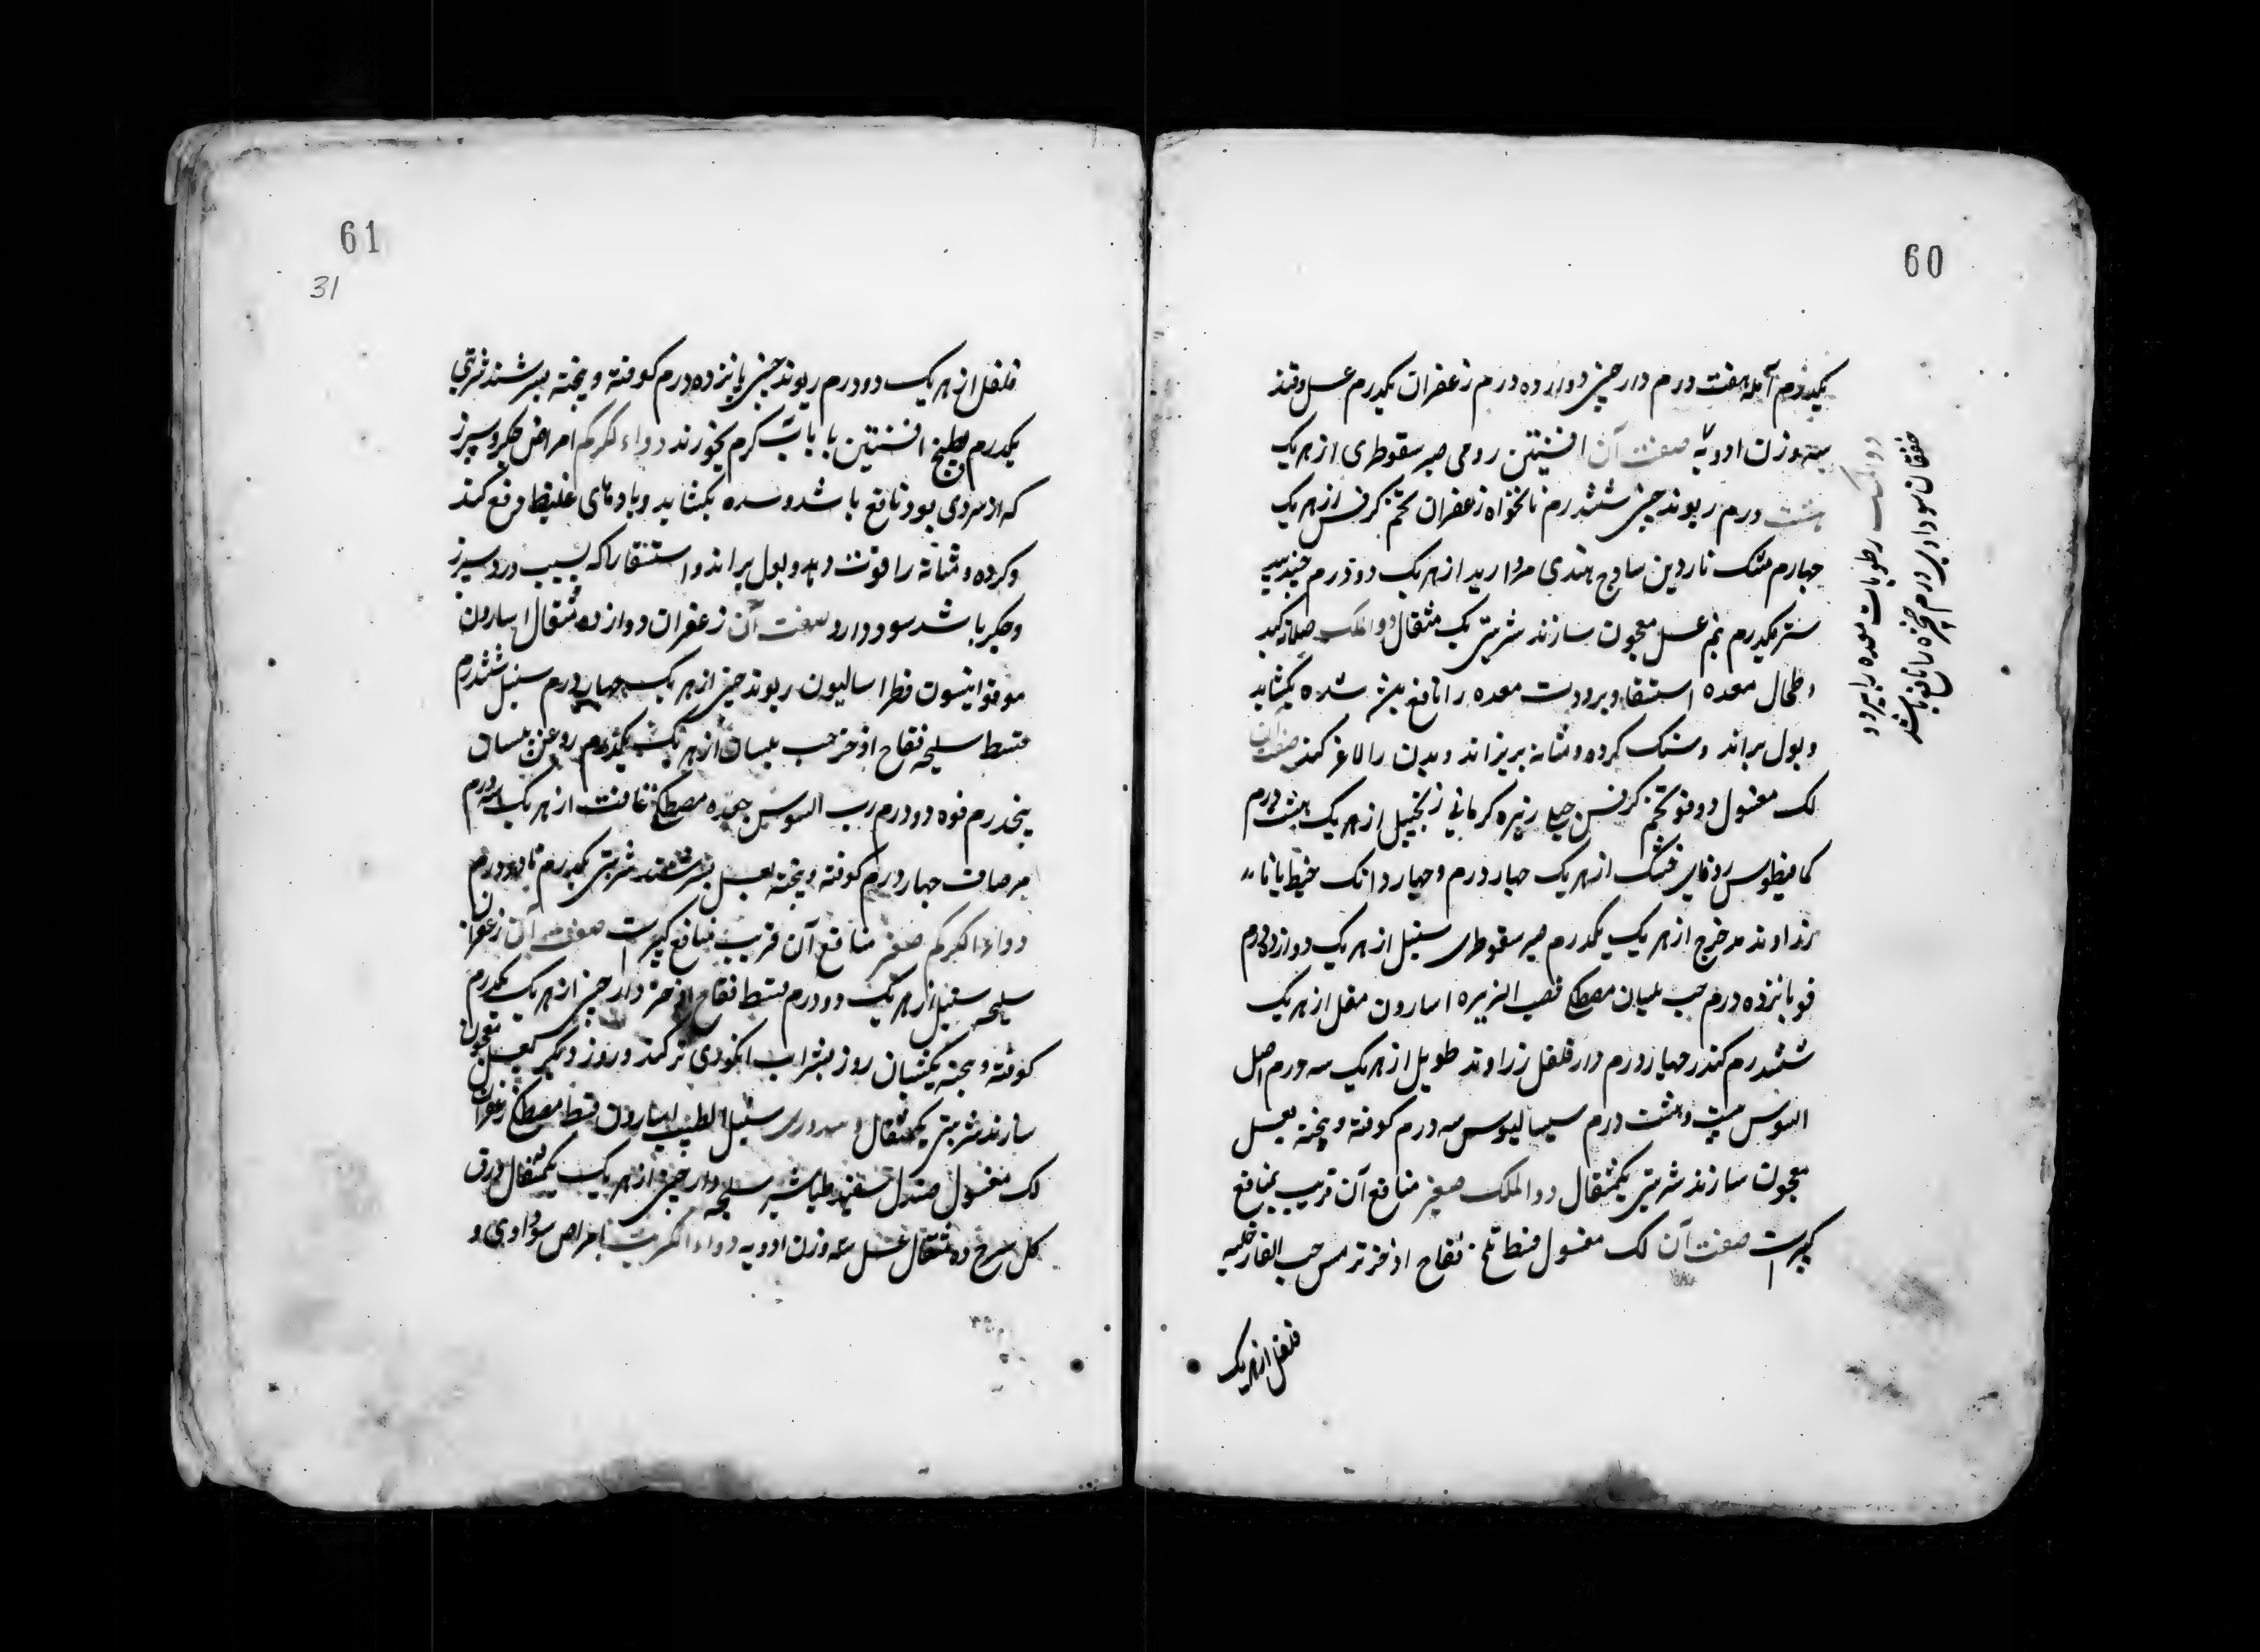 60
یکدرم آمله هفت درم دارچینی دوازده درم زعفران یکدرم عسل و قند
سه وزن ادویه صفت آن افسنتین رومی صبر سقوطری از هریک
هشت درم ریوند چینی ششدرم نانخواه زعفران تخم کرفس از هریک
چهارم مشک ناردین ساذج هندی مروارید از هریک دو درم جندبید
ستر یکدرم نیم عسل معجون سازند شربتی یک مثقال دوالملک صلابة کبد
و طحال معده استسقا و برودت معده را نافع سده بکشاید
و بول براند و سنک کرده و مثانه بریزاند و بدن را لاغر کند صفت آن
لک مغسول دوقو تخم کرفس زیره کرمانی زنجبیل از هریک هشت درم
کمافیطوس زوفای خشک از هریک چهار درم و چهار دانک جنطیانا
زراوند مدحرج از هریک یکدرم صبر سقوطری سنبل از هریک دوازده درم
فو پانزده درم حب بلسان مصطکی قصب الذریره اسارون مقل از هریک
ششدرم کندر چهاردرم دارفلفل زراوند طویل از هریک سه درم اصل
السوس بیست و هشت درم سیسالیوس سه درم کوفته و بیخته بعسل
معجون سازند شربتی یکمثقال دوالملک صغیر منافع آن قریب بمنافع
کبیرست صفت آن لک مغسول قسط تلخ فقاح اذخر ترمس حب الغار حلبه
فلفل از هریک
دوالمسک رطوبات معده را ببرد و
خفقان سوداوی و درم حنجره را نافع باشد
61
31
فلفل از هریک دو درم ریوند چینی پانزده درم کوفته و بیخته بسرشند شربتی
یکدرم بطبیخ افسنتین یا بآب کرم بخورند دواء الکرکم امراض جکر و سپرز
که از سردی بود نافع باشد و سده بکشاید و بادهای غلیظ دفع کند
و کرده و مثانه را قوت دهد و بول براند و استسقا را که بسبب درد سپرز
و جکر باشد سود دارد صفت آن زعفران دوازده مثقال اسارون
مو دوقو انیسون فطراسالیون ریوند چینی از هریک چهار درم سنبل ششدرم
قسط سلیخه فقاح اذخر حب بلسان از هریک یکدرم روغن بلسان
پنجدرم فوه دو درم رب السوس جعده مصطکی غافث از هریک سه درم
مرصاف چهار درم کوفته و بیخته بعسل بسرشند شربتی یکدرم تا دو درم
دواء الکرکم صغیر منافع آن قریب بمنافع کبیرست صفت آن زعفران
سلیخه سنبل از هریک دو درم قسط فقاح اذخر دارچینی از هریک یکدرم
کوفته و بیخته یکشبان روز بشراب انکوری تر کنند و روز دیکر بعسل معجون
سازند شربتی یکمثقال سنبل الطیب اسارون قسط مصطکی زعفران
لک مغسول صندل سفید طباشیر سلیخه دارچینی از هریک یکمثقال ورق
کل سرخ ده مثقال عسل سه وزن ادویه دواء الکبریت امراض سوداوی و